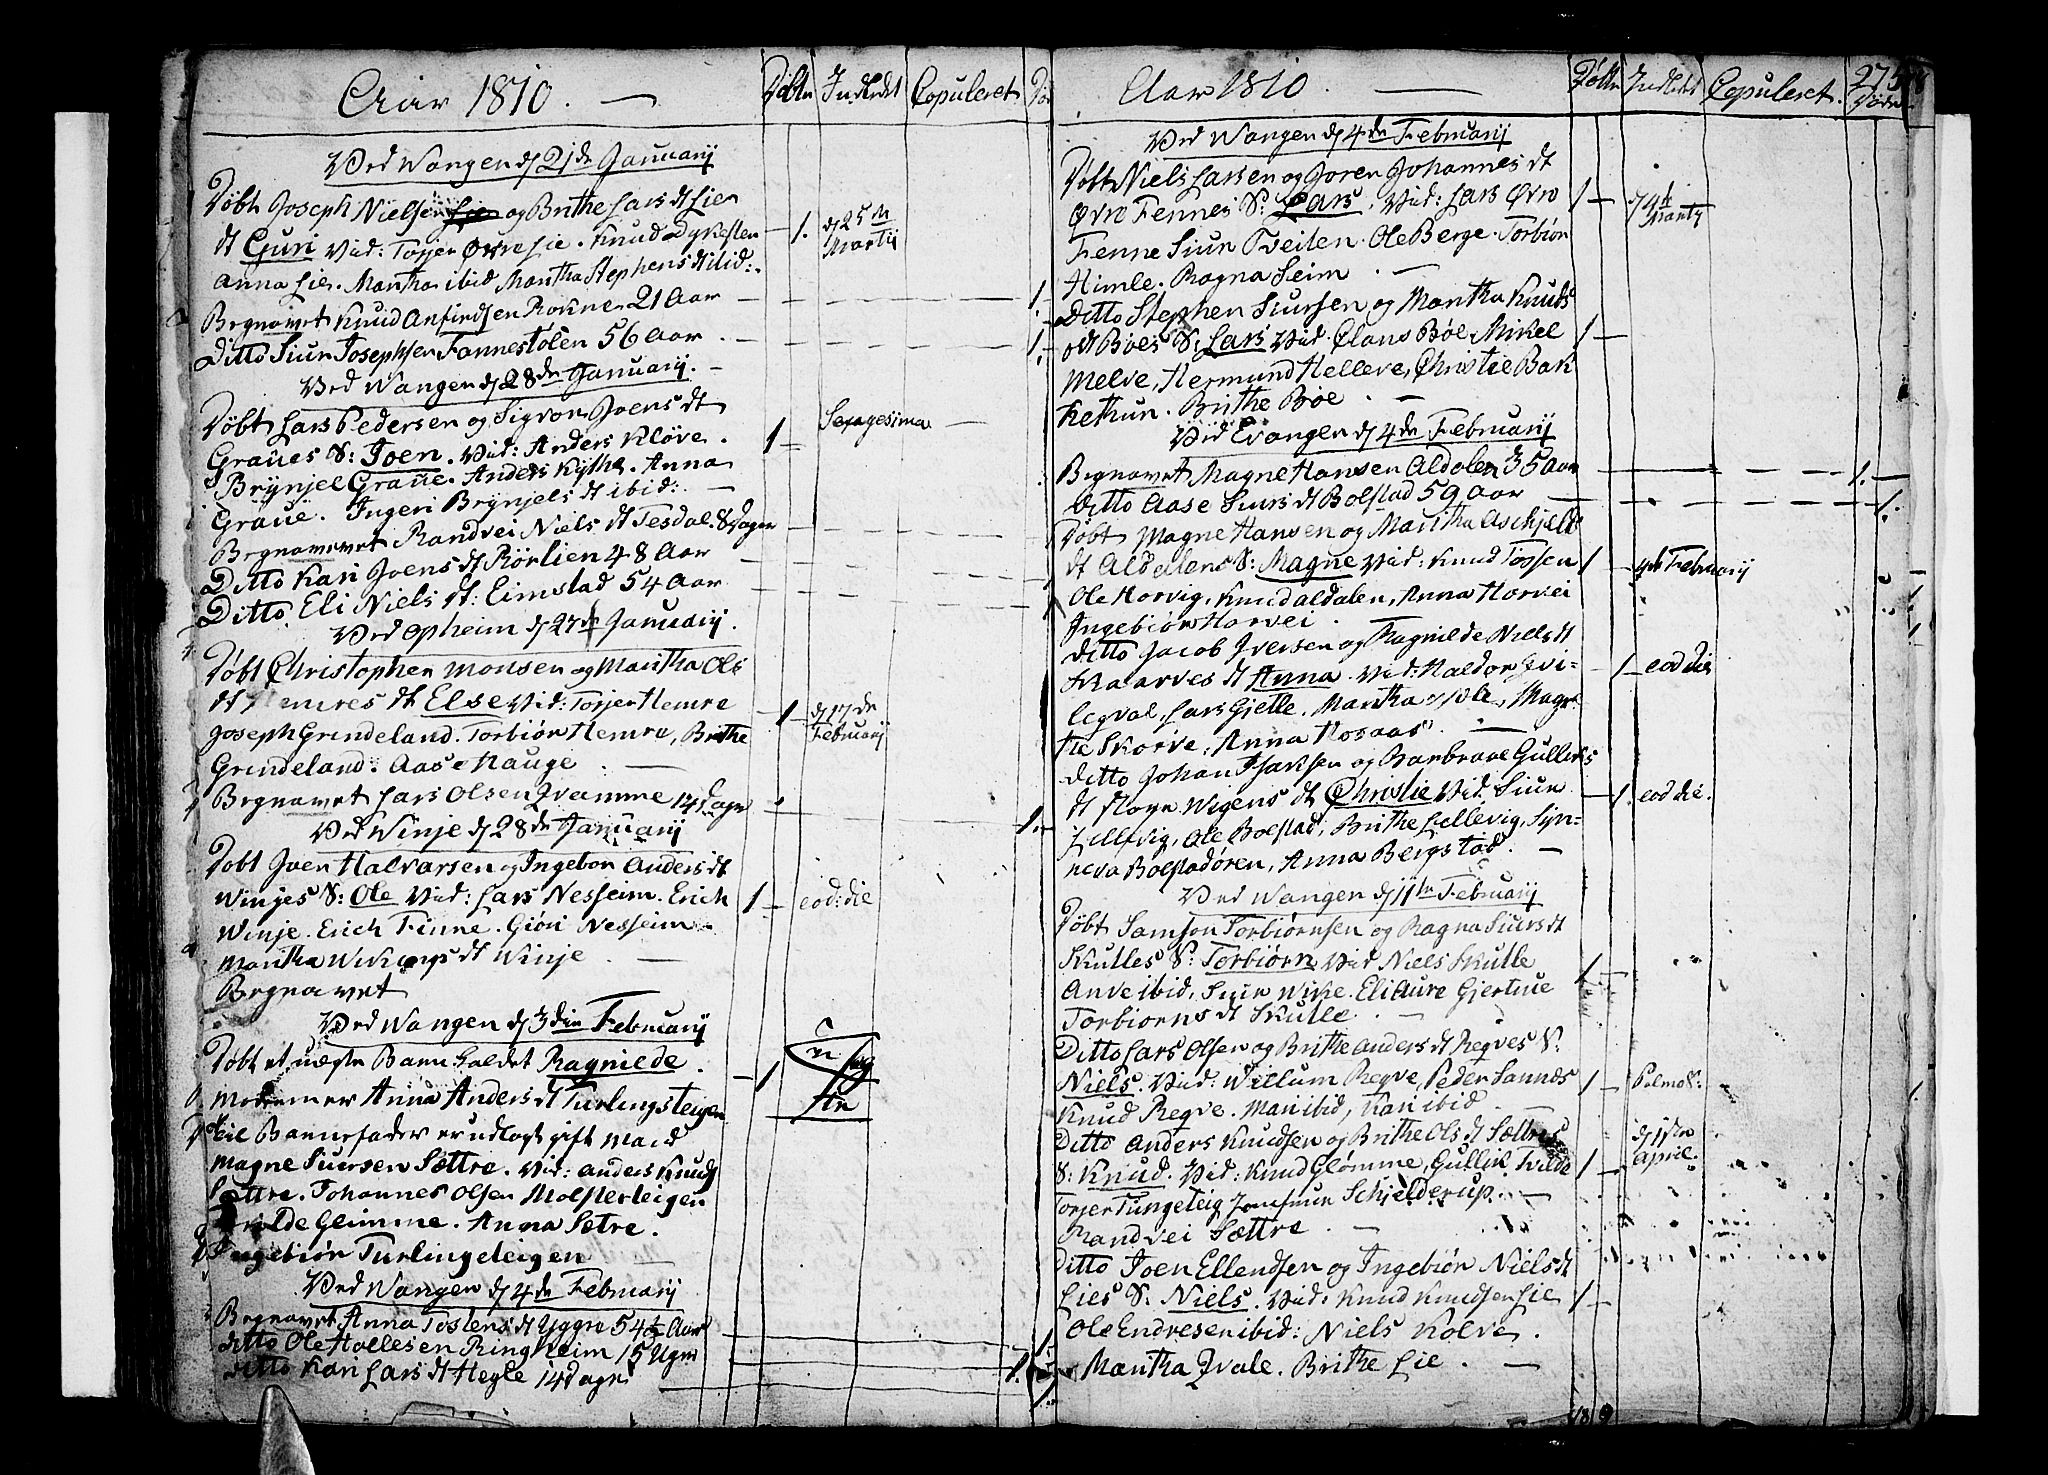 Aar 1810. Døbte Indledt Copuleret Dø
Ved Wangen d 21de Januarij
Døbt Joseph Nielsen og Brithe Lars dt Lies
dt Guri Vid: Torjer Øvre Lie. Knud Dykesten 1. d 25de Martij
Anna Lie. Martha ibid Martha Stephens dt ibid:
Begravet Knud Anfindsen Rokne 21 Aar 1.
Ditto Siur Josephsen Fannestølen 56 Aar. 1.
Ved Wangen d 28de Januarij.
Døbt Lars Pedersen og Sigvor Joens dt Sexagesima
Graues S: Joen. Vid: Anders Kløve. 1
Brÿnjel Graue. Anders Kÿthe. Anna
Graue. Ingeri Brÿnjels dt ibid:
Begravevet Randvei Niels dt Tesdal. 8 Dager
Ditto Kari Joens dt Rørlien 48 Aar
Ditto. Eli Niels dt: Eimstad 54 Aar
Ved Opheim d 27de Januarij.
Døbt Christopher Monsen og Martha Ols
dt Hemres dt Else Vid: Torjer Hemre 1 d 17de
Joseph Grindeland. Torbiør Hemre, Brithe Februarij
Grindeland. Aase Hauge.
Begravet Lars Olsen Qvamme 14 Dage 1.
Ved Winje d 28de Januarij
Døbt Joen Halvarsen og Ingebor Anders dt
Winjes S: Ole Vid: Lars Nesheim. Erich 1 eod: die
Winje. Erich Finne. Giøri Nesheim.
Martha Wikings dt Winje.
Begravet
Ved Wangen d 3die Februarij
Døbt et uægte Barn kaldet Ragnilde. 1
Moderen er Anna Anders dt Turlingsteigen
til Barnefader er udlagt gift Mand
Magne Siursen Sættre. Vid: Anders Knuds
Sættre. Johannes Olsen Molsterteigen
Glimme. Anna Sætre.
Ingebiør Turlingeteigen
Ved Wangen d 4de Februarij
Begravet Anna Tostens dt Yggre 54 1/2 Aar 1
ditto Ole Hollesen Ringheim 15 Uger 1.
ditto Kari Lars dt Hegle 14 dage 1.
Aar 1810. Døbte Indledt Copuleret. Døde
Ved Wangen d 4de Februarij
Døbt Niels Larsen og Joren Johannes dt
Øvre Fennes S: Lars. Vid: Lars Øvre 1 d 4de Martij
Fenne Siur Tveiten. Ole Berge. Torbiør
Himle. Ragna Seim.
Ditto Stephen Siursen og Martha Knuds
dt Bøes S: Lars Vid. Claus Bøe Mikel 1
Melve, Hermund Helleve, Christie Bak
kethun. Brithe Bøe.
Ved Evangen d 4de Februarij
Begravet Magne Hansen Aldalen 35 Aar 1.
Ditto Aase Siurs dt Bolstad 59 Aar 1.
Døbt Magne Hansen og Martha Aschjelds
dt Aldalens S: Magne Vid: Knud Tossen 1 4de Februarij
Ole Horvig, Knud Aldalen, Anna Horvei
Ingebiør Horvei.
Ditto Jacob Iversen og Ragnilde Niels dt
Skaarves dt Anna. Vid: Haldor Evi= 1 eod die
legval, Lars Gjelle. Martha Magre
the Skorve, Anna Rosaas.
Ditto Johan Isaksen og Barbraae Gulleks
dt Wigens dt Christie Vid. Siur 1. eod die.
Lillevig, Ole Bolstad, Brithe Lillevig, Syn=
neva Bolstadøren, Anna Bergstad.
Ved Wangen d 11te Februarij
Døbt Samson Torbiørnsen og Ragna Siurs dt
Skulles S: Torbiørn Vid Niels Skulle 1
Anve ibid, Siur Wike. Eli Aure Gjertrue
Torbiorns dt Skulle.
Ditto Lars Olsen og Brithe Anders dt Reqves S:
Niels. Vid: Willum Reqve, Peder Sannes 1 Palme S:
Knud Reqve. Mari ibid, Kari ibid
Ditto Anders Knudsen og Brithe Ols dt Sættres d 1ste
S: Knud. Vid: Knud Glømme, Gullik Tvilde 1 April.
Torjer Tungeteig Jomfruue Schjelderup.
Randvei Sættre
Ditto Joen Ellendsen og Ingebiør Niels dt
Lies S: Niels. Vid: Knud Knudsen Lie 1
Ole Endresen ibid: Niels Kolve.
Martha Qvale. Brithe Lie.